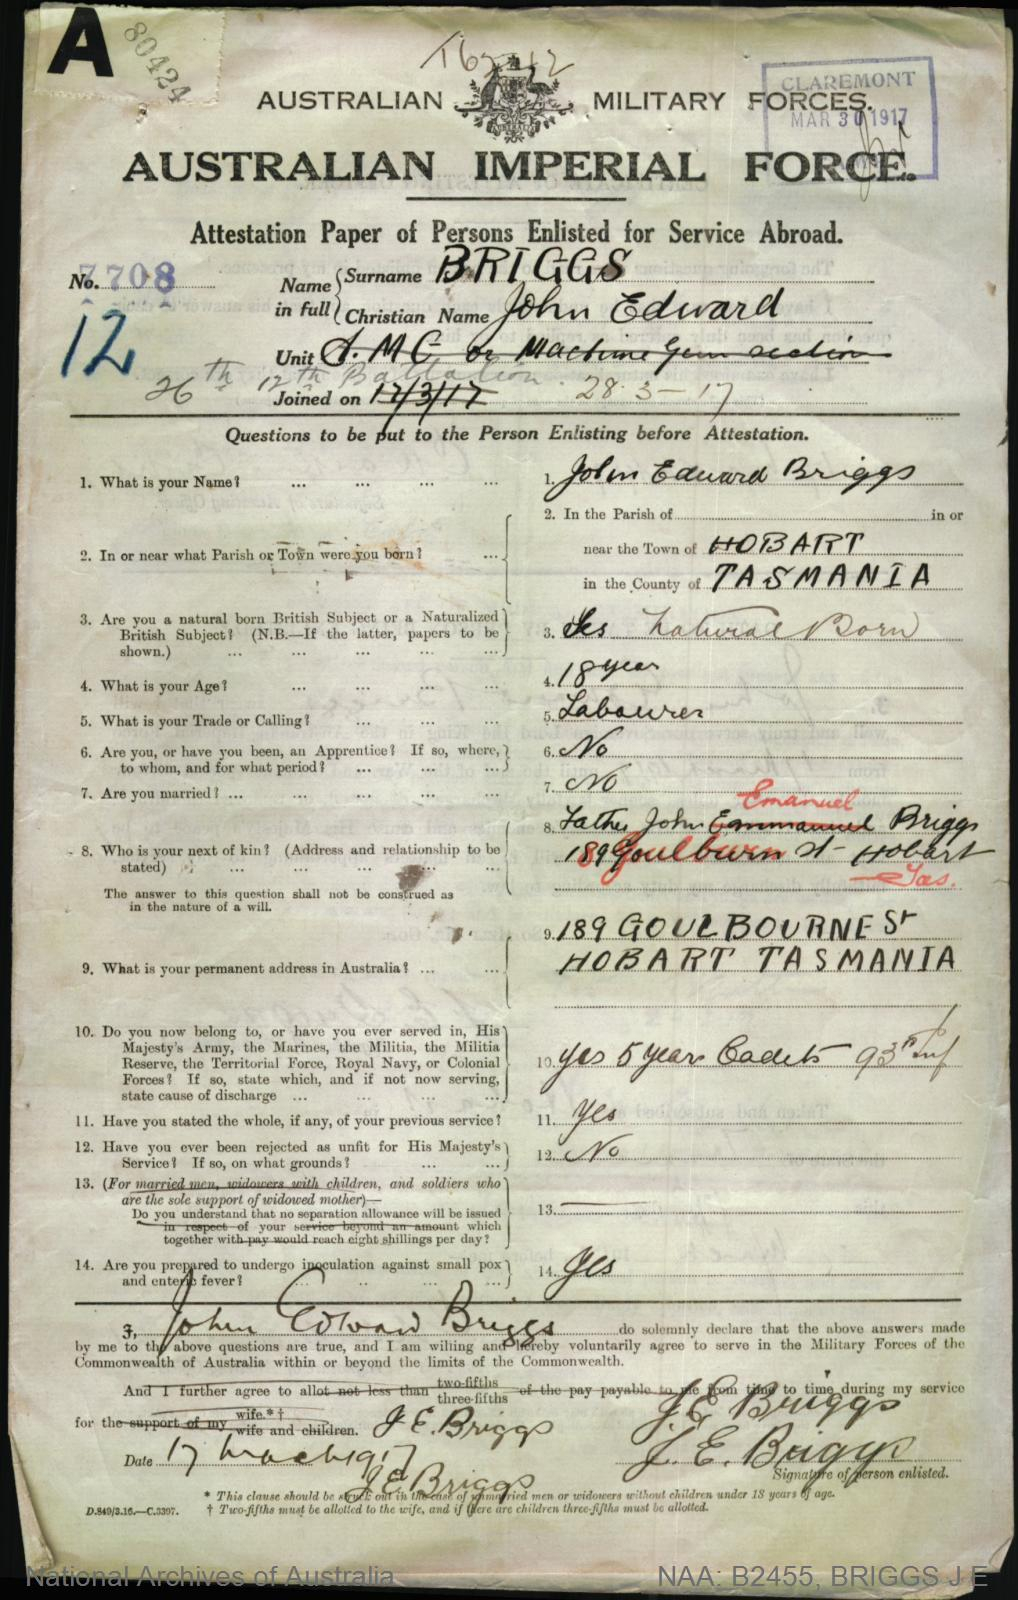 A
80424
AUSTRALIAN MILITARY FORCES.
CLAREMONT
MAR 30 1917
AUSTRALIAN IMPERIAL FORCE.
Attestation Paper of Persons Enlisted for Service Abroad.
No. 7708
Name in full
Surname BRIGGS
Christian Name John Edward
12
Unit A.M.C or Machine Gun section
26th 12th Battalion
Joined on 17/3/17 28-3-17
Questions to be put to the Person Enlisting before Attestation.
1. What is your Name? ... ... ... ... 1. John Edward Briggs
2. In or near what Parish or Town were you born? ... 2. In the Parish of in or
near the Town of HOBART
in the County of TASMANIA
3. Are you a natural born British Subject or a Naturalized
British Subject? (N.B.—If the latter, papers to be
shown.) ... ... ... ... 3. Yes Natural Born
4. What is your Age? ... ... ... ... 4. 18 year
5. What is your Trade or Calling? ... ... ... 5. Labourer
6. Are you, or have you been, an Apprentice? If so, where,
to whom, and for what period? ... ... ... 6. No
7. Are you married? ... ... ... ... ... 7. No
Emanuel
8. Who is your next of kin? (Address and relationship to be
stated) ... ... ... ... 8. Father John Emmanuel Briggs
189 Goulburn St Hobart
Tas.
The answer to this question shall not be construed as
in the nature of a will.
9. What is your permanent address in Australia? ... ... 9. 189 GOULBOURNE St
HOBART TASMANIA
10. Do you now belong to, or have you ever served in, His
Majesty's Army, the Marines, the Militia, the Militia
Reserve, the Territorial Force, Royal Navy, or Colonial
Forces? If so, state which, and if not now serving,
state cause of discharge ... ... ... ... 10. yes 5 years Cadets 93rd Inf
11. Have you stated the whole, if any, of your previous service? 11. yes
12. Have you ever been rejected as unfit for His Majesty's
Service? If so, on what grounds? ... ... 12. No
13. (For married men, widowers with children, and soldiers who
are the sole support of widowed mother)—
Do you understand that no separation allowance will be issued
in respect of your service beyond an amount which
together with pay would reach eight shillings per day? 13. —
14. Are you prepared to undergo inoculation against small pox
and enteric fever? ... .. ... ... 14. Yes
I, John Edward Briggs do solemnly declare that the above answers made
by me to the above questions are true, and I am willing and hereby voluntarily agree to serve in the Military Forces of the
Commonwealth of Australia within or beyond the limits of the Commonwealth.
And I further agree to allot not less than two-fifths three-fifths of the pay payable to me from time to time during my service
for the support of my wife.*† wife and children. J E. Briggs J. E. Briggs
Date 17 March 1917 J. E. Briggs
J. E. Briggs Signature of person enlisted.
* This clause should be struck out in the case of unmarried men or widowers without children under 18 years of age.
D.849/3.16.—C.3397. † Two-fifths must be allotted to the wife, and if there are children three-fifths must be allotted.
National Archives of Australia NAA: B2455, BRIGGS J E